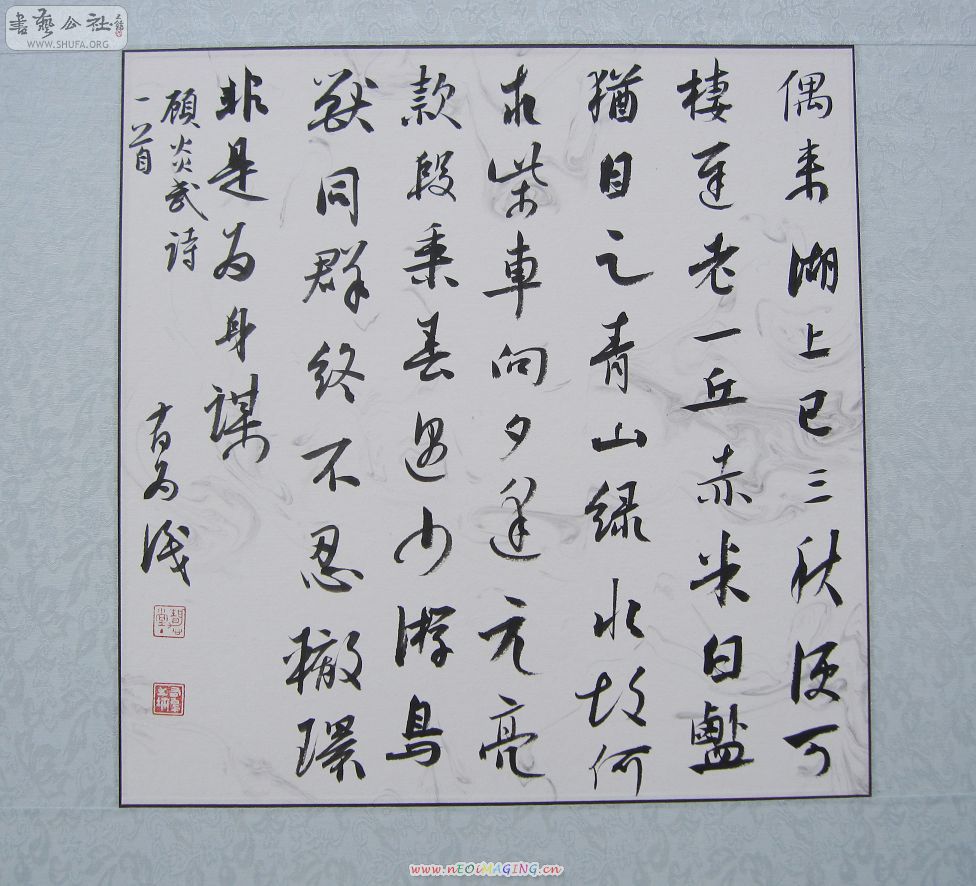 書藝公社
WWW.SHUFA.ORG
偶来湖上已三秋便可
棲遲老一丘赤米白鹽
猶自足青山緑水故何
求柴車向夕逢元亮
款段乘春遇少游鳥
獸同群终不忍轍環
非是为身謀
顾炎武诗
一首
www.nEOiMAGING.cn